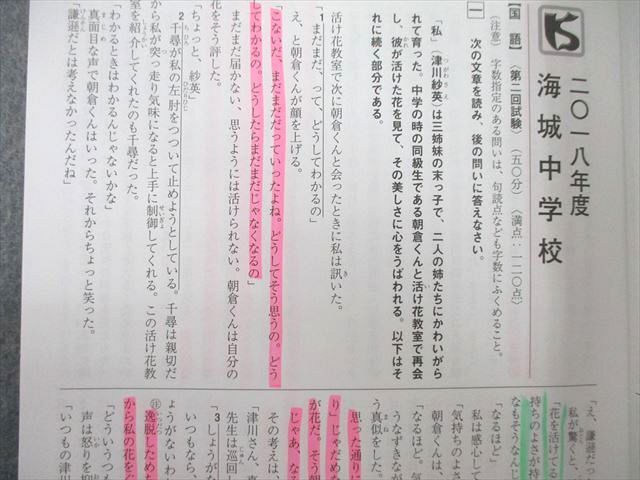 二〇一八年度
海城中学校
【国語】〈第二回試験〉(五〇分)〈満点:一二〇点〉
(注意) 字数指定のある問いは、句読点なども字数にふくめること。
一 次の文章を読み、後の問いに答えなさい。
「私」(津川紗英)は三姉妹の末っ子で、二人の姉たちにかわいがら
れて育った。中学の時の同級生である朝倉くんと活け花教室で再会
し、彼が活けた花を見て、その美しさに心をうばわれる。以下はそ
れに続く部分である。
活け花教室で次に朝倉くんと会ったときに私は訊いた。
1「まだまだ、って、どうしてわかるの」
え、と朝倉くんが顔を上げる。
「こないだ、まだまだだっていったよね。どうしてそう思うの。どう
してわかるの。どうしたらまだまだじゃなくなるの」
まだまだ届かない、思うようには活けられない。朝倉くんは自分の
花をそう評した。
「ちょっと、紗英」
2千尋が私の左肘をつついて止めようとしている。千尋は親切だ
から私が突っ走り気味になると上手に制御してくれる。この活け花教
室を紹介してくれたのも千尋だった。
「わかるときはわかるんじゃないかな」
真面目な声で朝倉くんはいった。それからちょっと笑った。
「謙遜だとは考えなかったんだね」
「え、謙遜だっ
私が驚くと、
「花を活けてる
持ちのよさが持
なもそうなんじ
「なるほど」
私は感心して
「気持ちのよさ
朝倉くんは、
「なるほど。気
うなずきなが
う真似をした。
思った通りに
り」じゃだめな
が花だ。そう朝
じゃあ、なる
その考えは、
「津川さん、真
先生は巡回し
3「しょうがな
いつもなら、
ょうがないわ
注逸脱しためち
から私の花をぐ
「どういうつも
声は怒りを抑
「いつもの津川